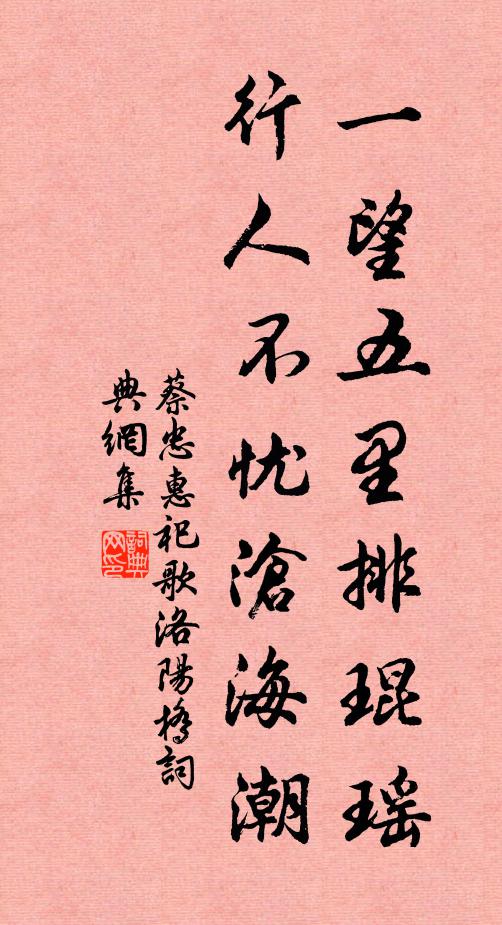 一望五里排琨瑶
行人不忧滄海潮
蔡忠惠祀歌洛陽橋詞
典網集
詞典网印